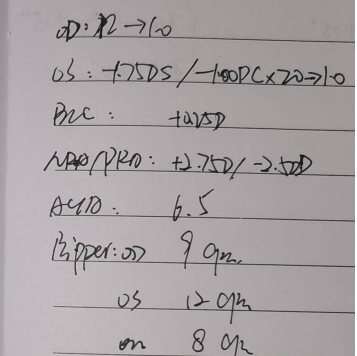 OD: Pl → 1.0
OS: -1.75DS / -1.00DC×20 → 1.0
BCC: +0.25D
NRA/PRA: +2.75D/-2.50D
AC/A: 6.5
Flipper: OD 9 cpm
OS 12 cpm
8 cpm